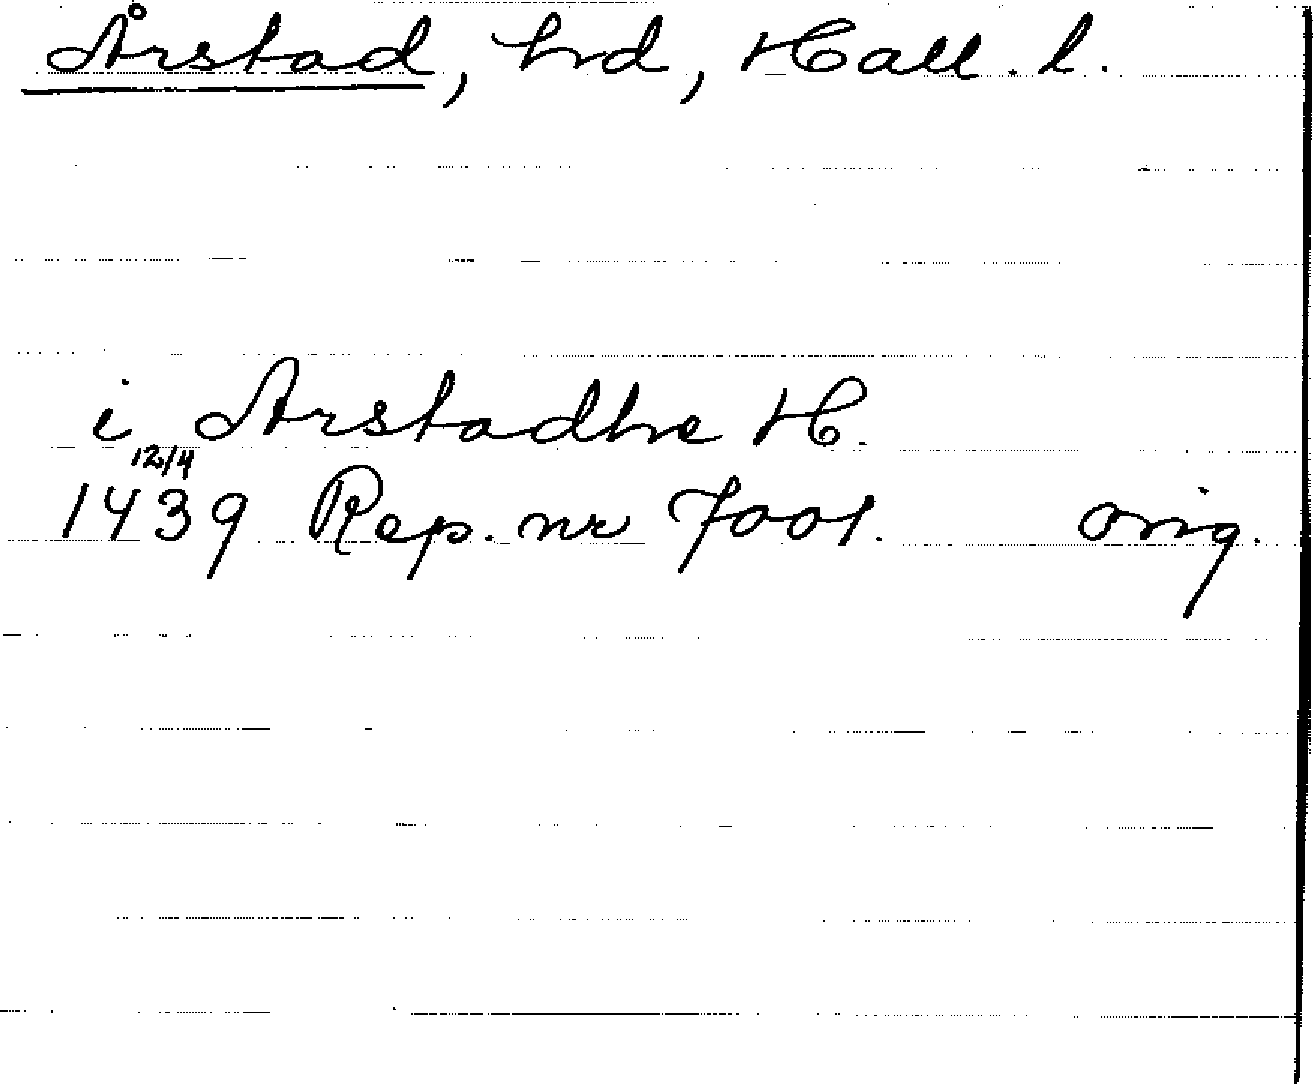 Årstad, hrd, Hall. l.
i Arstadhe H.
12/4
1439 Rep. nr 7001. orig.